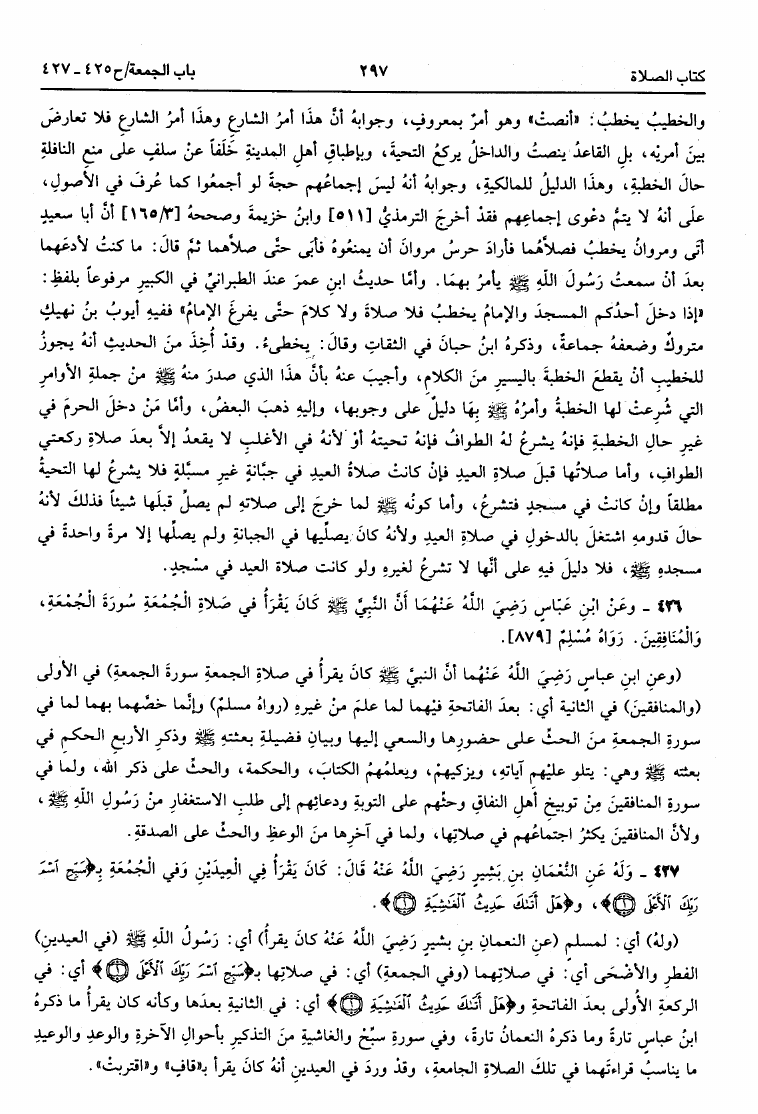 كتاب الصلاة ٢٩٧ باب الجمعة/ح٤٢٥ - ٤٢٧
والخطيبُ يخطبُ: «أنصتْ» وهو أمرٌ بمعروفٍ، وجوابهُ أنَّ هذَا أمرُ الشارعِ وهذَا أمرُ الشارعِ فلا تعارضَ
بينَ أمريْه، بلِ القاعدُ ينصتُ والداخلُ يركعُ التحيةَ، وبإطباقِ أهلِ المدينةِ خَلَفاً عنْ سلفٍ على منعِ النافلةِ
حالَ الخطبةِ، وهذَا الدليلُ للمالكيةِ، وجوابهُ أنهُ ليسَ إجماعُهم حجةً لو أجمعُوا كما عُرفَ في الأصولِ،
على أنهُ لا يتمُّ دعْوى إجماعِهم فقدْ أخرجَ الترمذيُّ [٥١١] وابنُ خزيمةَ وصححهُ [١٦٥/٣] أنَّ أبا سعيدٍ
أتَى ومروانُ يخطبُ فصلَّاهُما فأرادَ حرسُ مروانَ أن يمنعُوهُ فأبَى حتَّى صلَّاهما ثمَّ قالَ: ما كنتُ لأدعَهما
بعدَ أن سمعتُ رَسُولَ اللهِ ﷺ يأمرُ بهمَا. وأمَّا حديثُ ابنِ عمرَ عندَ الطبرانيِّ في الكبيرِ مرفوعاً بلفظِ:
«إذا دخلَ أحدُكم المسجدَ والإمامُ يخطبُ فلا صلاةَ ولا كلامَ حتَّى يفرغَ الإمامُ» ففيهِ أيوبُ بنُ نهيكٍ
متروكٌ وضعفهُ جماعةٌ، وذكرهُ ابنُ حبانَ في الثقاتِ وقالَ: يخطىءُ. وقدْ أُخِذَ منَ الحديثِ أنهُ يجوزُ
للخطيبِ أنْ يقطعَ الخطبةَ باليسيرِ منَ الكلامِ، وأجيبَ عنهُ بأنَّ هذَا الذي صدرَ منهُ ﷺ منْ جملةِ الأوامرِ
التي شُرعتْ لها الخطبةُ وأمرُهُ ﷺ بِهَا دليلٌ على وجوبِها، وإليهِ ذهبَ البعضُ، وأمَّا مَنْ دخلَ الحرمَ في
غيرِ حالِ الخطبةِ فإنهُ يشرعُ لهُ الطوافُ فإنهُ تحيتهُ أوْ لأنهُ في الأغلبِ لا يقعدُ إلاَّ بعدَ صلاةِ ركعتي
الطوافِ، وأما صلاتُها قبلَ صلاةِ العيدِ فإنْ كانتْ صلاةُ العيدِ في جبَّانةٍ غيرِ مسبَّلةٍ فلا يشرعُ لها التحيةُ
مطلقاً وإنْ كانتْ في مسجدٍ فتشرعُ، وأما كونُه ﷺ لما خرجَ إلى صلاتهِ لم يصلِّ قبلَها شيئاً فذلكَ لأنهُ
حالَ قدومهِ اشتغلَ بالدخولِ في صلاةِ العيدِ ولأنهُ كانَ يصلِّيها في الجبانةِ ولم يصلِّها إلا مرةً واحدةً في
مسجدهِ ﷺ، فلا دليلَ فيهِ على أنَّها لا تشرعُ لغيرهِ ولو كانت صلاة العيد في مسْجدٍ.
٤٢٦ - وعَنْ ابْنِ عَبَّاسٍ رَضِيَ اللَّهُ عَنْهُمَا أَنَّ النَّبِيَّ ﷺ كَانَ يَقْرَأُ في صَلاةِ الْجُمُعَةِ سُورَةَ الْجُمُعَةِ،
وَالْمُنَافِقِينَ. رَوَاهُ مُسْلِمٌ [٨٧٩].
(وعنِ ابنِ عباسٍ رَضِيَ اللَّهُ عَنْهُما أنَّ النبيَّ ﷺ كانَ يقرأُ في صلاةِ الجمعةِ سورةَ الجمعةِ) في الأولى
(والمنافقينَ) في الثانية أي: بعدَ الفاتحةِ فيْهما لما علمَ منْ غيرهِ (رواهُ مسلمٌ) وإنَّما خصَّهما بهما لما في
سورةِ الجمعةِ منَ الحثِّ على حضورِها والسعي إليها وبيانِ فضيلةِ بعثتهِ ﷺ وذكرِ الأربعِ الحكمِ في
بعثته ﷺ وهي: يتلو عليْهم آياتهِ، ويزكيهمْ، ويعلمُهمُ الكتابَ، والحكمة، والحثِّ على ذكر الله، ولما في
سورةِ المنافقينَ مِنْ توبيخِ أهلِ النفاقِ وحثِّهم على التوبةِ ودعائِهم إلى طلبِ الاستغفارِ منْ رَسُولِ اللهِ ﷺ،
ولأنَّ المنافقينَ يكثرُ اجتماعُهم في صلاتِها، ولما في آخرِها منَ الوعظِ والحثِّ على الصدقةِ.
٤٢٧ - وَلَهُ عَنِ النُّعْمَانِ بنِ بَشِيرٍ رَضِيَ اللَّهُ عَنْهُ قَالَ: كَانَ يَقْرَأُ فِي الْعِيدَيْنِ وَفي الْجُمُعَةِ بِـ﴿سَبِّحِ ٱسْمَ
رَبِّكَ ٱلْأَعْلَى ١﴾، و﴿هَلْ أَتَىٰكَ حَدِيثُ ٱلْغَٰشِيَةِ ١﴾.
(ولهُ) أي: لمسلمٍ (عنِ النعمانِ بنِ بشيرٍ رَضِيَ اللَّهُ عَنْهُ كانَ يقرأُ) أي: رَسُولُ اللهِ ﷺ (في العيدينِ)
الفطرِ والأضْحَى أي: في صلاتِهما (وفي الجمعةِ) أي: في صلاتِها بـ﴿سَبِّحِ ٱسْمَ رَبِّكَ ٱلْأَعْلَى ١﴾ أي: في
الركعةِ الأولى بعدَ الفاتحةِ و﴿هَلْ أَتَىٰكَ حَدِيثُ ٱلْغَٰشِيَةِ ١﴾ أي: في الثانيةِ بعدَها وكأنه كان يقرأُ ما ذكرهُ
ابنُ عباسٍ تارةً وما ذكرهُ النعمانُ تارةً، وفي سورةِ سبِّحْ والغاشيةِ منَ التذكيرِ بأحوالِ الآخرةِ والوعدِ والوعيدِ
ما يناسبُ قراءتَهما في تلكَ الصلاةِ الجامعةِ، وقدْ وردَ في العيدينِ أنهُ كانَ يقرأُ بـ«قافٍ» و«اقتربتْ».